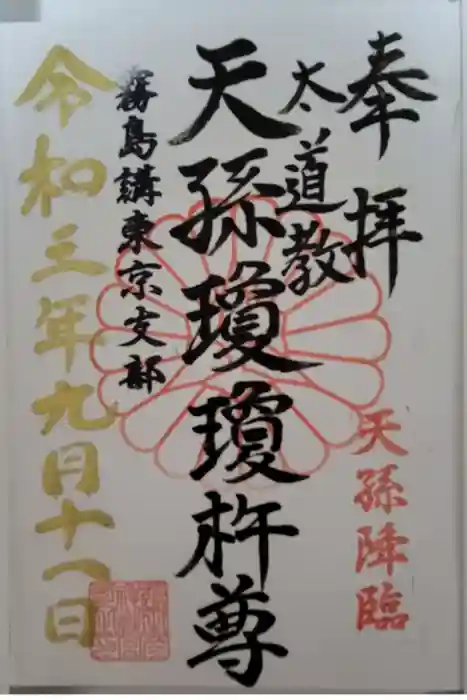 奉拝
天孫降臨
太道教
天孫瓊瓊杵尊
霧島講東京支部
令和三年九月十一日